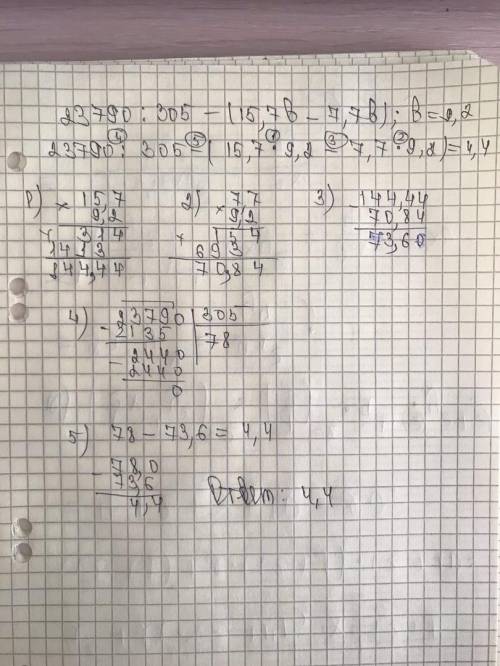 23790 : 305 - (15,7в - 7,7в); в = 9,2
23790 : 305 - (15,7 · 9,2 - 7,7 · 9,2) = 4,4
4 5 1 3 2
1) × 15,7
9,2
314
1413
144,44
2) × 7,7
9,2
154
693
70,84
3) - 144,44
70,84
73,60
4) - 23790 | 305
2135 | 78
- 2440
2440
0
5) 78 - 73,6 = 4,4
- 78,0
73,6
4,4
Ответ: 4,4